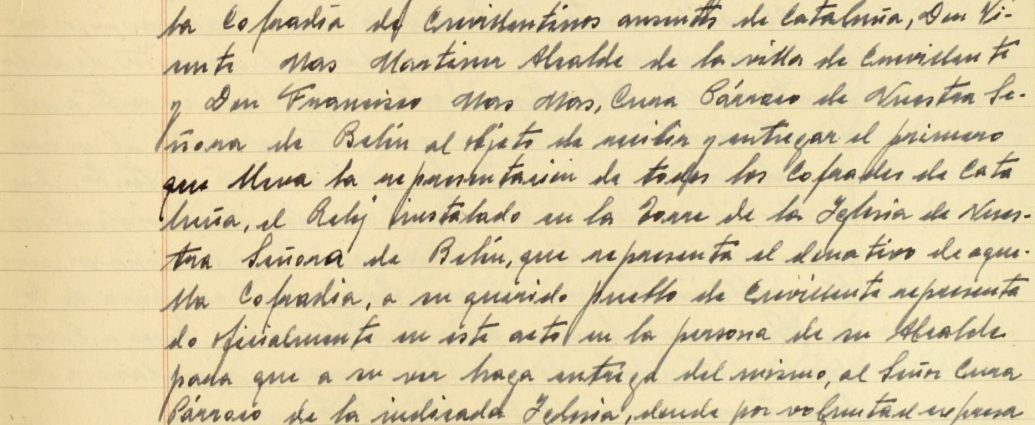 la Cofradía de Crevillentinos ausentes de Cataluña, Don Vi-
cente Mas Martinez Alcalde de la villa de Crevillente
y Don Francisco Mas Mas, Cura Párroco de Nuestra Se-
ñora de Belén al objeto de recibir y entregar el primero
que lleva la representación de todos los Cofrades de Cata
luña, el Reloj instalado en la Torre de la Iglesia de Nues-
tra Señora de Belén, que representa el donativo de aque-
lla Cofradia, a su querido pueblo de Crevillente representa
do oficialmente en este acto en la persona de su Alcalde
para que a su vez haga entrega del mismo, al Señor Cura
Párroco de la indicada Iglesia, donde por voluntad expresa